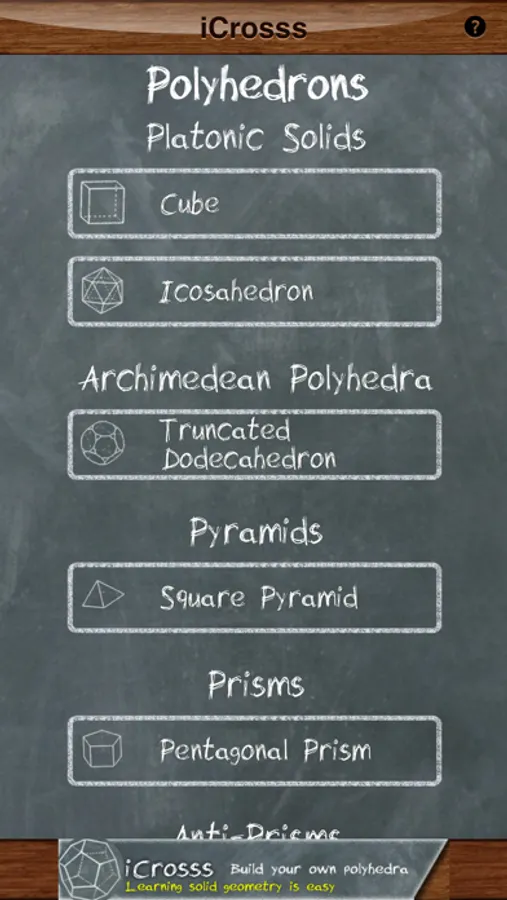 iCrosss
?
Polyhedrons
Platonic Solids
Cube
Icosahedron
Archimedean Polyhedra
Truncated
Dodecahedron
Pyramids
Square Pyramid
Prisms
Pentagonal Prism
Anti-Prisms
iCrosss Build your own polyhedra
Learning solid geometry is easy